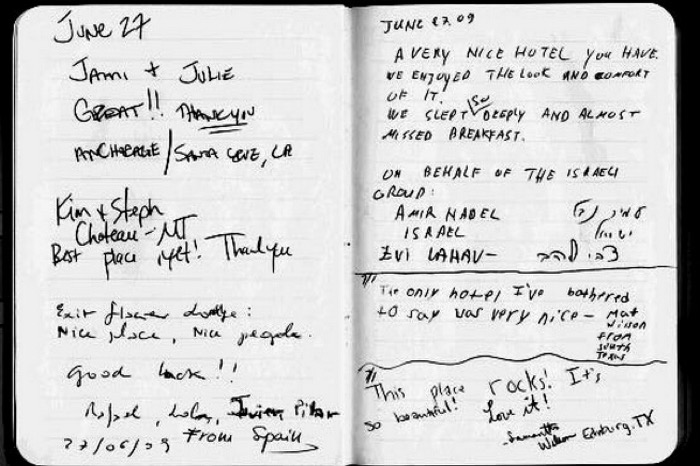 June 27
Jami + Julie
GREAT!! THANK YOU
ANCHORAGE / SANTA CRUZ, CA
Kim & Steph
Choteau - MT
Best place yet! Thank you
Exit flower lodge:
Nice place, Nice people.
good luck!!
Rafael, Lola, Javier, Pilar
27/06/09 From Spain
JUNE 27 09
A VERY NICE HOTEL YOU HAVE.
WE ENJOYED THE LOOK AND COMFORT
OF IT.
WE SLEPT SO DEEPLY AND ALMOST
MISSED BREAKFAST.
ON BEHALF OF THE ISRAELI
GROUP:
AMIR NADEL עמיר נדל
ISRAEL ישראל
ZVI LAHAV - צבי להב
7/1
The only hotel I've bothered
to say was very nice - Mat
Wilson
from
South
Texas
7/1
This place rocks! It's
so beautiful! Love it!
- Samantha
Edinburg, TX